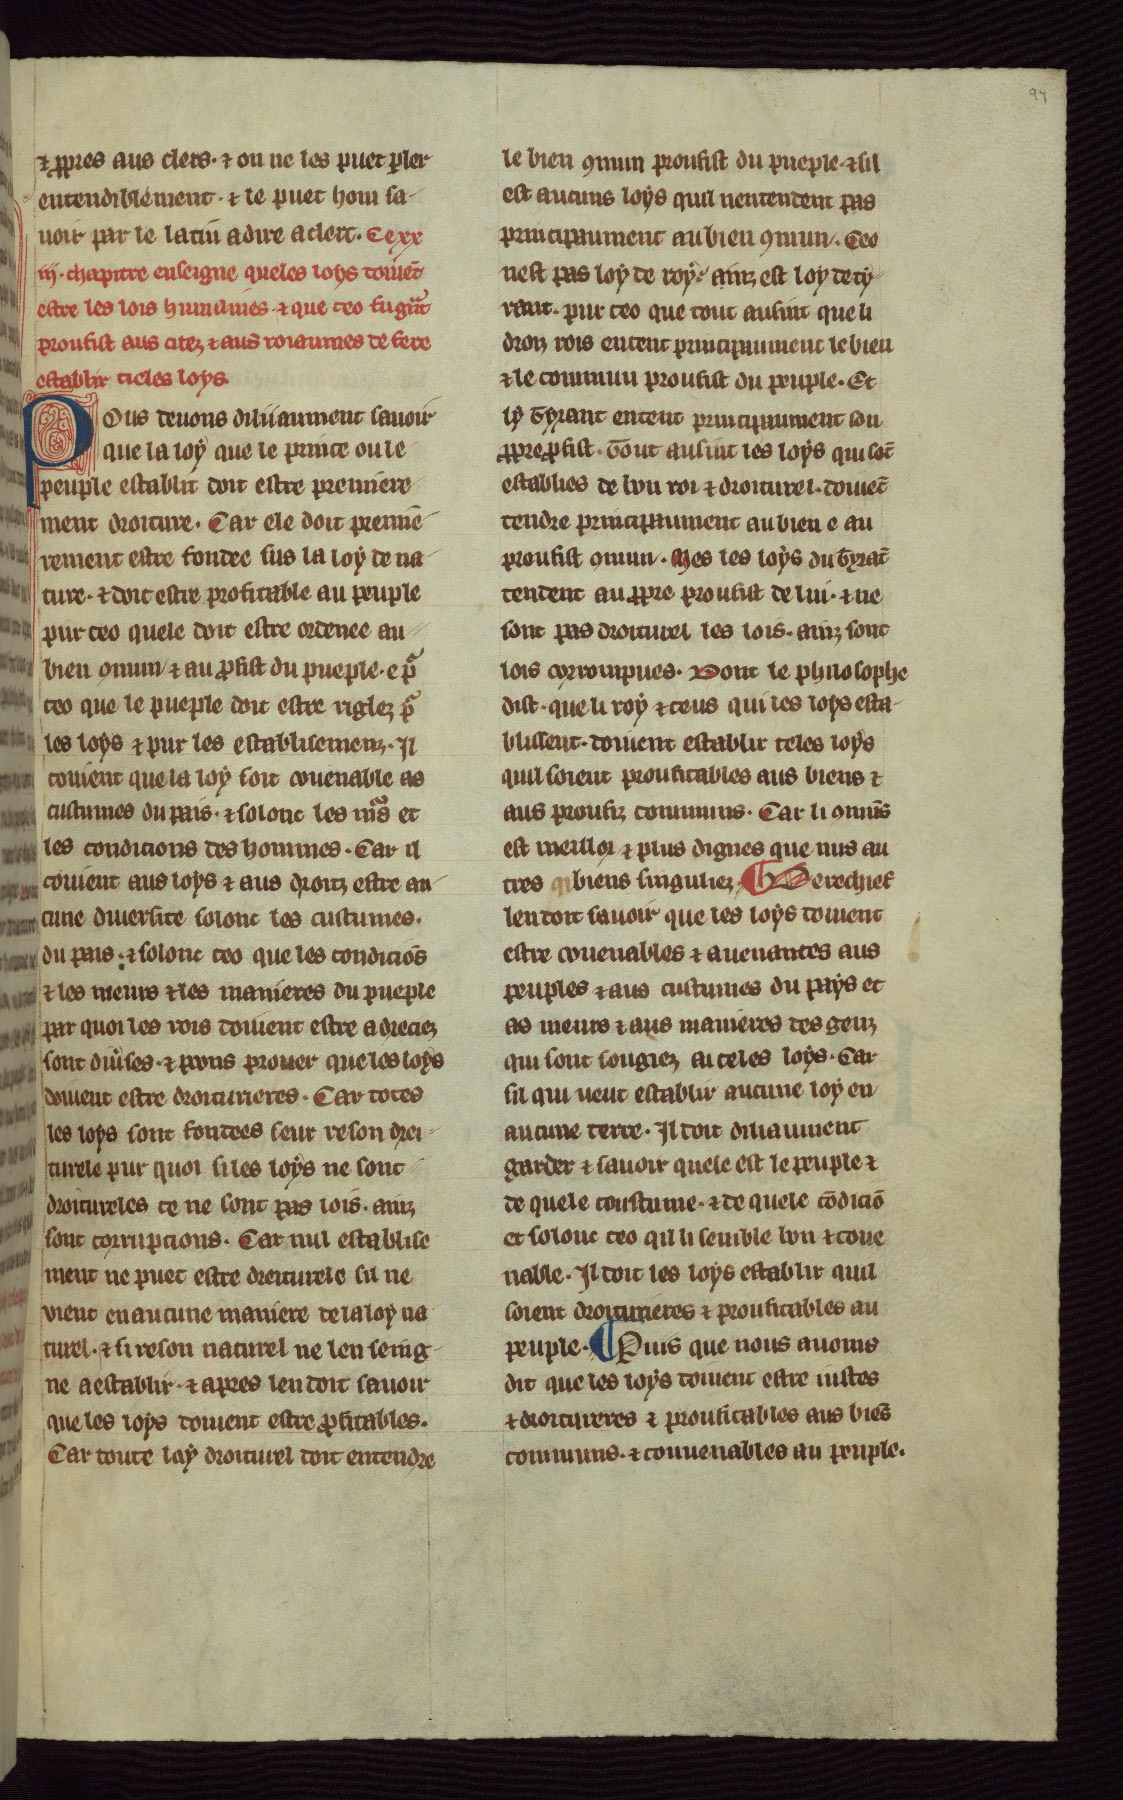 97
⁊ ꝓpres aus clers. ⁊ on ne les puet ꝑler
entendiblement. ⁊ le puet hom sa-
uoir par le latin adire a clert. Ce xx
iij. chapitre enseigne queles loys douiēt
estre les lois humaines. ⁊ que ceo fu gᵃnt
proufist aus citez ⁊ aus roiaumes de fere
establir tieles loys.
Pous deuons diliiaument sauoir
que la loy que le prince ou le
peuple establit doit estre premiere
ment droiture. Car ele doit premie-
rement estre fondee sus la loy de na-
ture. ⁊ doit estre profitable au peuple
pur ceo quele doit estre ordenee au
bien ꝯmun ⁊ au ꝓfist du pueple. e pᵃ
ceo que le pueple doit estre riglez pᵃ
les loys ⁊ pur les establisemenz. Il
couient que la loy soit couenable as
custumes du pais. ⁊ solonc les mᵃs et
les condicions des hommes. Car il
couient aus loys ⁊ aus droitz estre au-
cune diuersite solonc les custumes.
du pais. ⁊ solonc ceo que les condiciōs
⁊ les meurs ⁊ les manieres du pueple
par quoi les rois douient estre adreciez
sont diu̾ses. ⁊ poons prouer que les loys
douient estre droiturieres. Car totes
les loys sont fondees seur reson drei-
turele pur quoi si les loys ne sont
droitureles ce ne sont pas lois. ainz
sont corrupcions. Car nul establise
ment ne puet estre dreiturele sil ne
vient en aucune maniere de la loy na
turel. ⁊ si reson naturel ne len senig-
ne a establir. ⁊ apres len doit sauoir
que les loys douient estre ꝓfitables.
Car toute loy droiturel doit entendre
le bien ꝯmun proufist du pueple. ⁊ sil
est aucuns loys quil nentendent pas
principaument au bien ꝯmun. Ceo
nest pas loy de roy. ainz est loy de ty-
rant. pur ceo que tout ausint que li
droiz rois entent principaument le bien
⁊ le commun proufist du peuple. Et
ly Tyrant entent principaument son
ꝓpre ꝓfist. Tout ausint les loys qui sōt
establies de bon roi ⁊ droiturel. douiēt
tendre principaument au bien e au
proufist ꝯmun. Mes les loys du Tyrāt
tendent au ꝓpre proufist de lui. ⁊ ne
sont pas droiturel les lois. ainz sont
lois corrompues. Dont le philosophe
dist. que li roy ⁊ ceus qui les loys esta-
blissent. douient establir teles loys
quil soient proufitables aus biens ⁊
aus proufiz communs. Car li ꝯmūs
est meillor ⁊ plus dignes que nus au
tres biens singuliez. Derechief
len doit sauoir que les loys douient
estre couenables ⁊ auenantes aus
peuples ⁊ aus custumes du pays et
as meurs ⁊ aus manieres des genz
qui sont sougiez au celes loys. Car
sil qui ueut establir aucune loy en
aucune terre. Il doit diliaument
garder ⁊ sauoir quele est le peuple ⁊
de quele coustume. ⁊ de quele cōdiciō
et solonc ceo qil li semble bon ⁊ coue
nable. Il doit les loys establir quil
soient droiturieres ⁊ proufitables au
peuple. Puis que nous auoms
dit que les loys douient estre iustes
⁊ droitureres ⁊ proufitables aus biēs
communs. ⁊ conuenables au peuple.